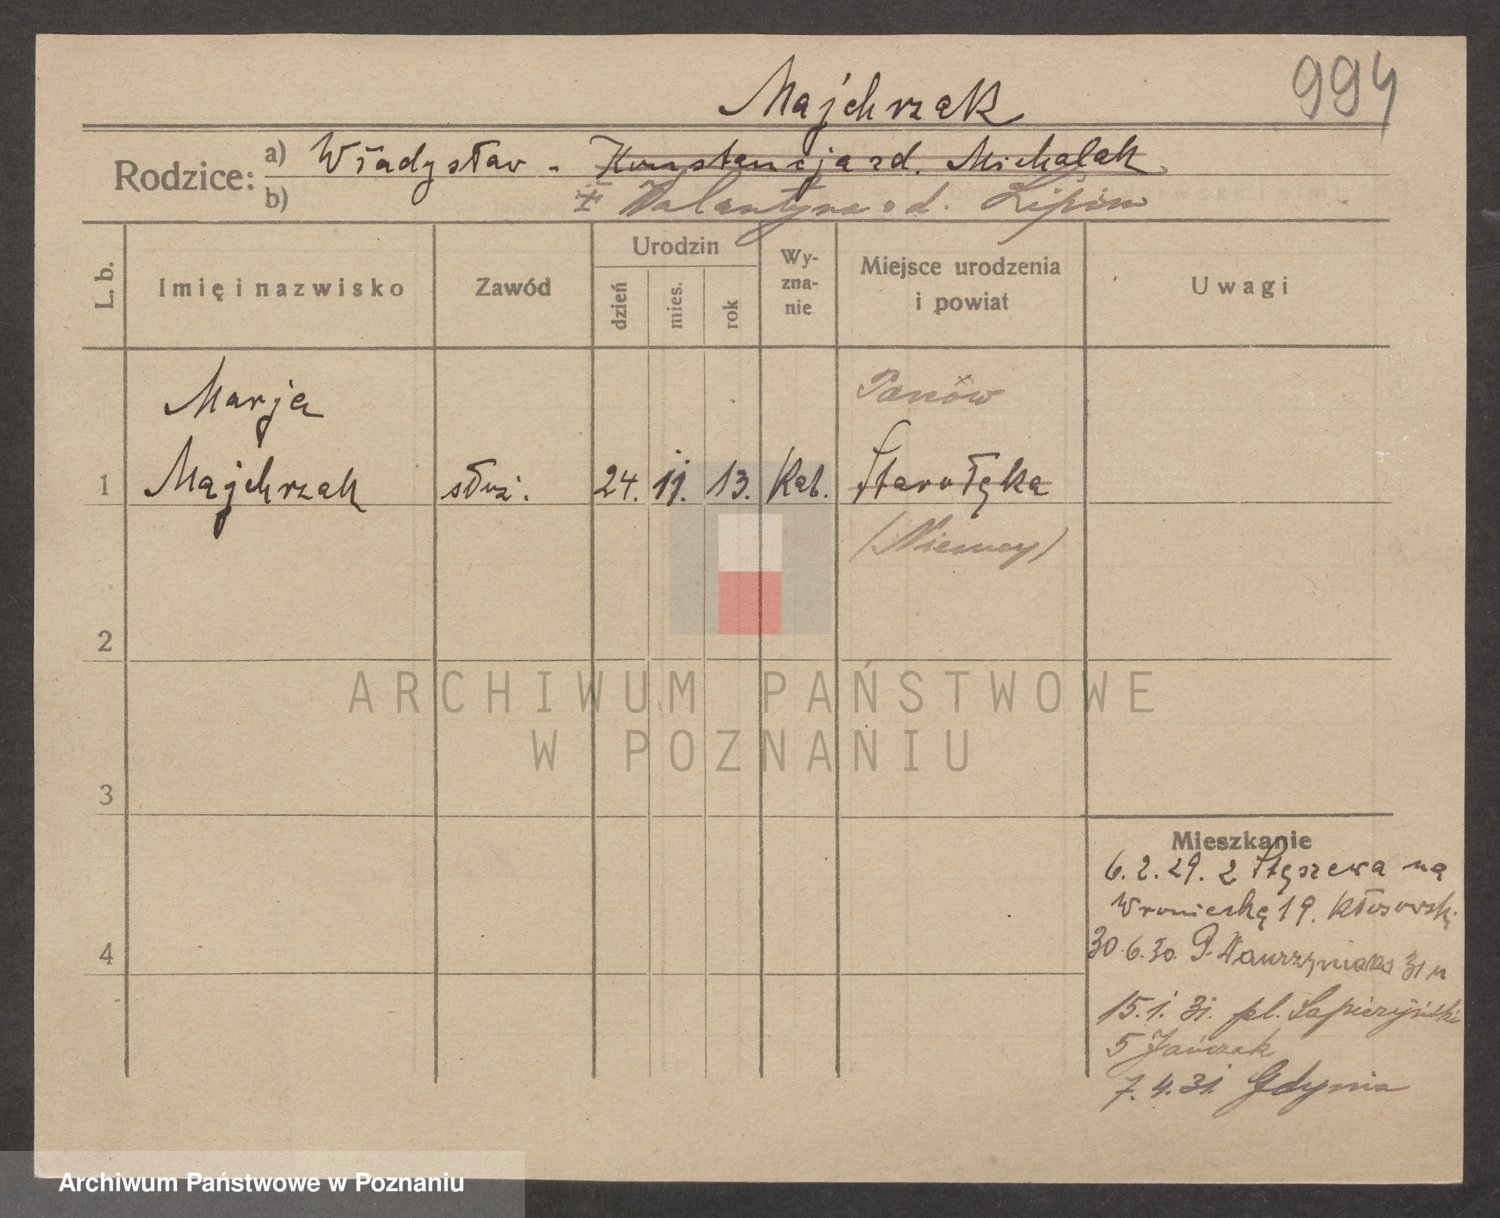 994
Majchrzak
Rodzice: a) Władysław - Konstancja zd. Michalak
b) Walantyna zd. Lipów
L. b.
Imię i nazwisko
Zawód
Urodzin
dzień
mies.
rok
Wy-
zna-
nie
Miejsce urodzenia
i powiat
Uwagi
Marja
Panów
1 Majchrzak służ. 24. 11. 13. Kat. Starołęka
(Niemcy)
2
ARCHIWUM PAŃSTWOWE
W POZNANIU
3
Mieszkanie
6. 2. 29. z Stęszewa na
Wroniecką 19. Kłosowski
4
30.6.30. P. Wawrzyniaka 31
15. 1. 31. pl. Sapieżyński
5 Jańczak
7. 4. 31. Gdynia
Archiwum Państwowe w Poznaniu